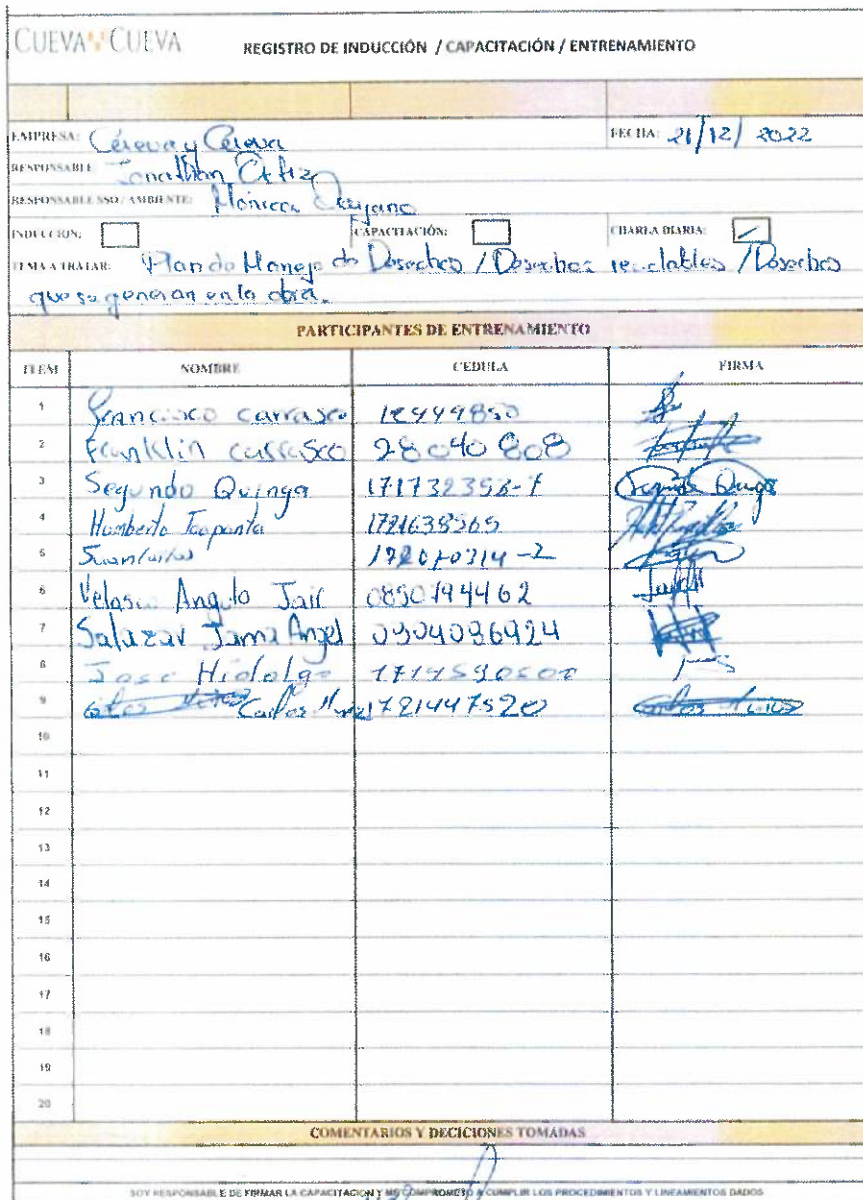 CUEVA Y CUEVA REGISTRO DE INDUCCIÓN / CAPACITACIÓN / ENTRENAMIENTO
EMPRESA: Cueva y Cueva FECHA: 21/12/2022
RESPONSABLE Jonathan Ortiz
RESPONSABLE SSO/AMBIENTE: Mónica
INDUCCION: CAPACITACIÓN: CHARLA DIARIA:
TEMA A TRATAR: Plan de Manejo de Desechos / Desechos reciclables / Desechos
que se generan en la obra.
PARTICIPANTES DE ENTRENAMIENTO
ITEM NOMBRE CEDULA FIRMA
1 Francisco Carrasco
2 Franklin Carrasco 28040808
3 Segundo Quinga 171732358-7
4 Humberto Toapanta 1721638565
5
6 Velasco Angulo Jair 0850194462
7 Salazar Jama Angel 0904096424
8 Jose Hidalgo
9 Carlos 1721447520
10
11
12
13
14
15
16
17
18
19
20
COMENTARIOS Y DECICIONES TOMADAS
SOY RESPONSABLE DE FIRMAR LA CAPACITACION Y ME COMPROMETO A CUMPLIR LOS PROCEDIMIENTOS Y LINEAMIENTOS DADOS